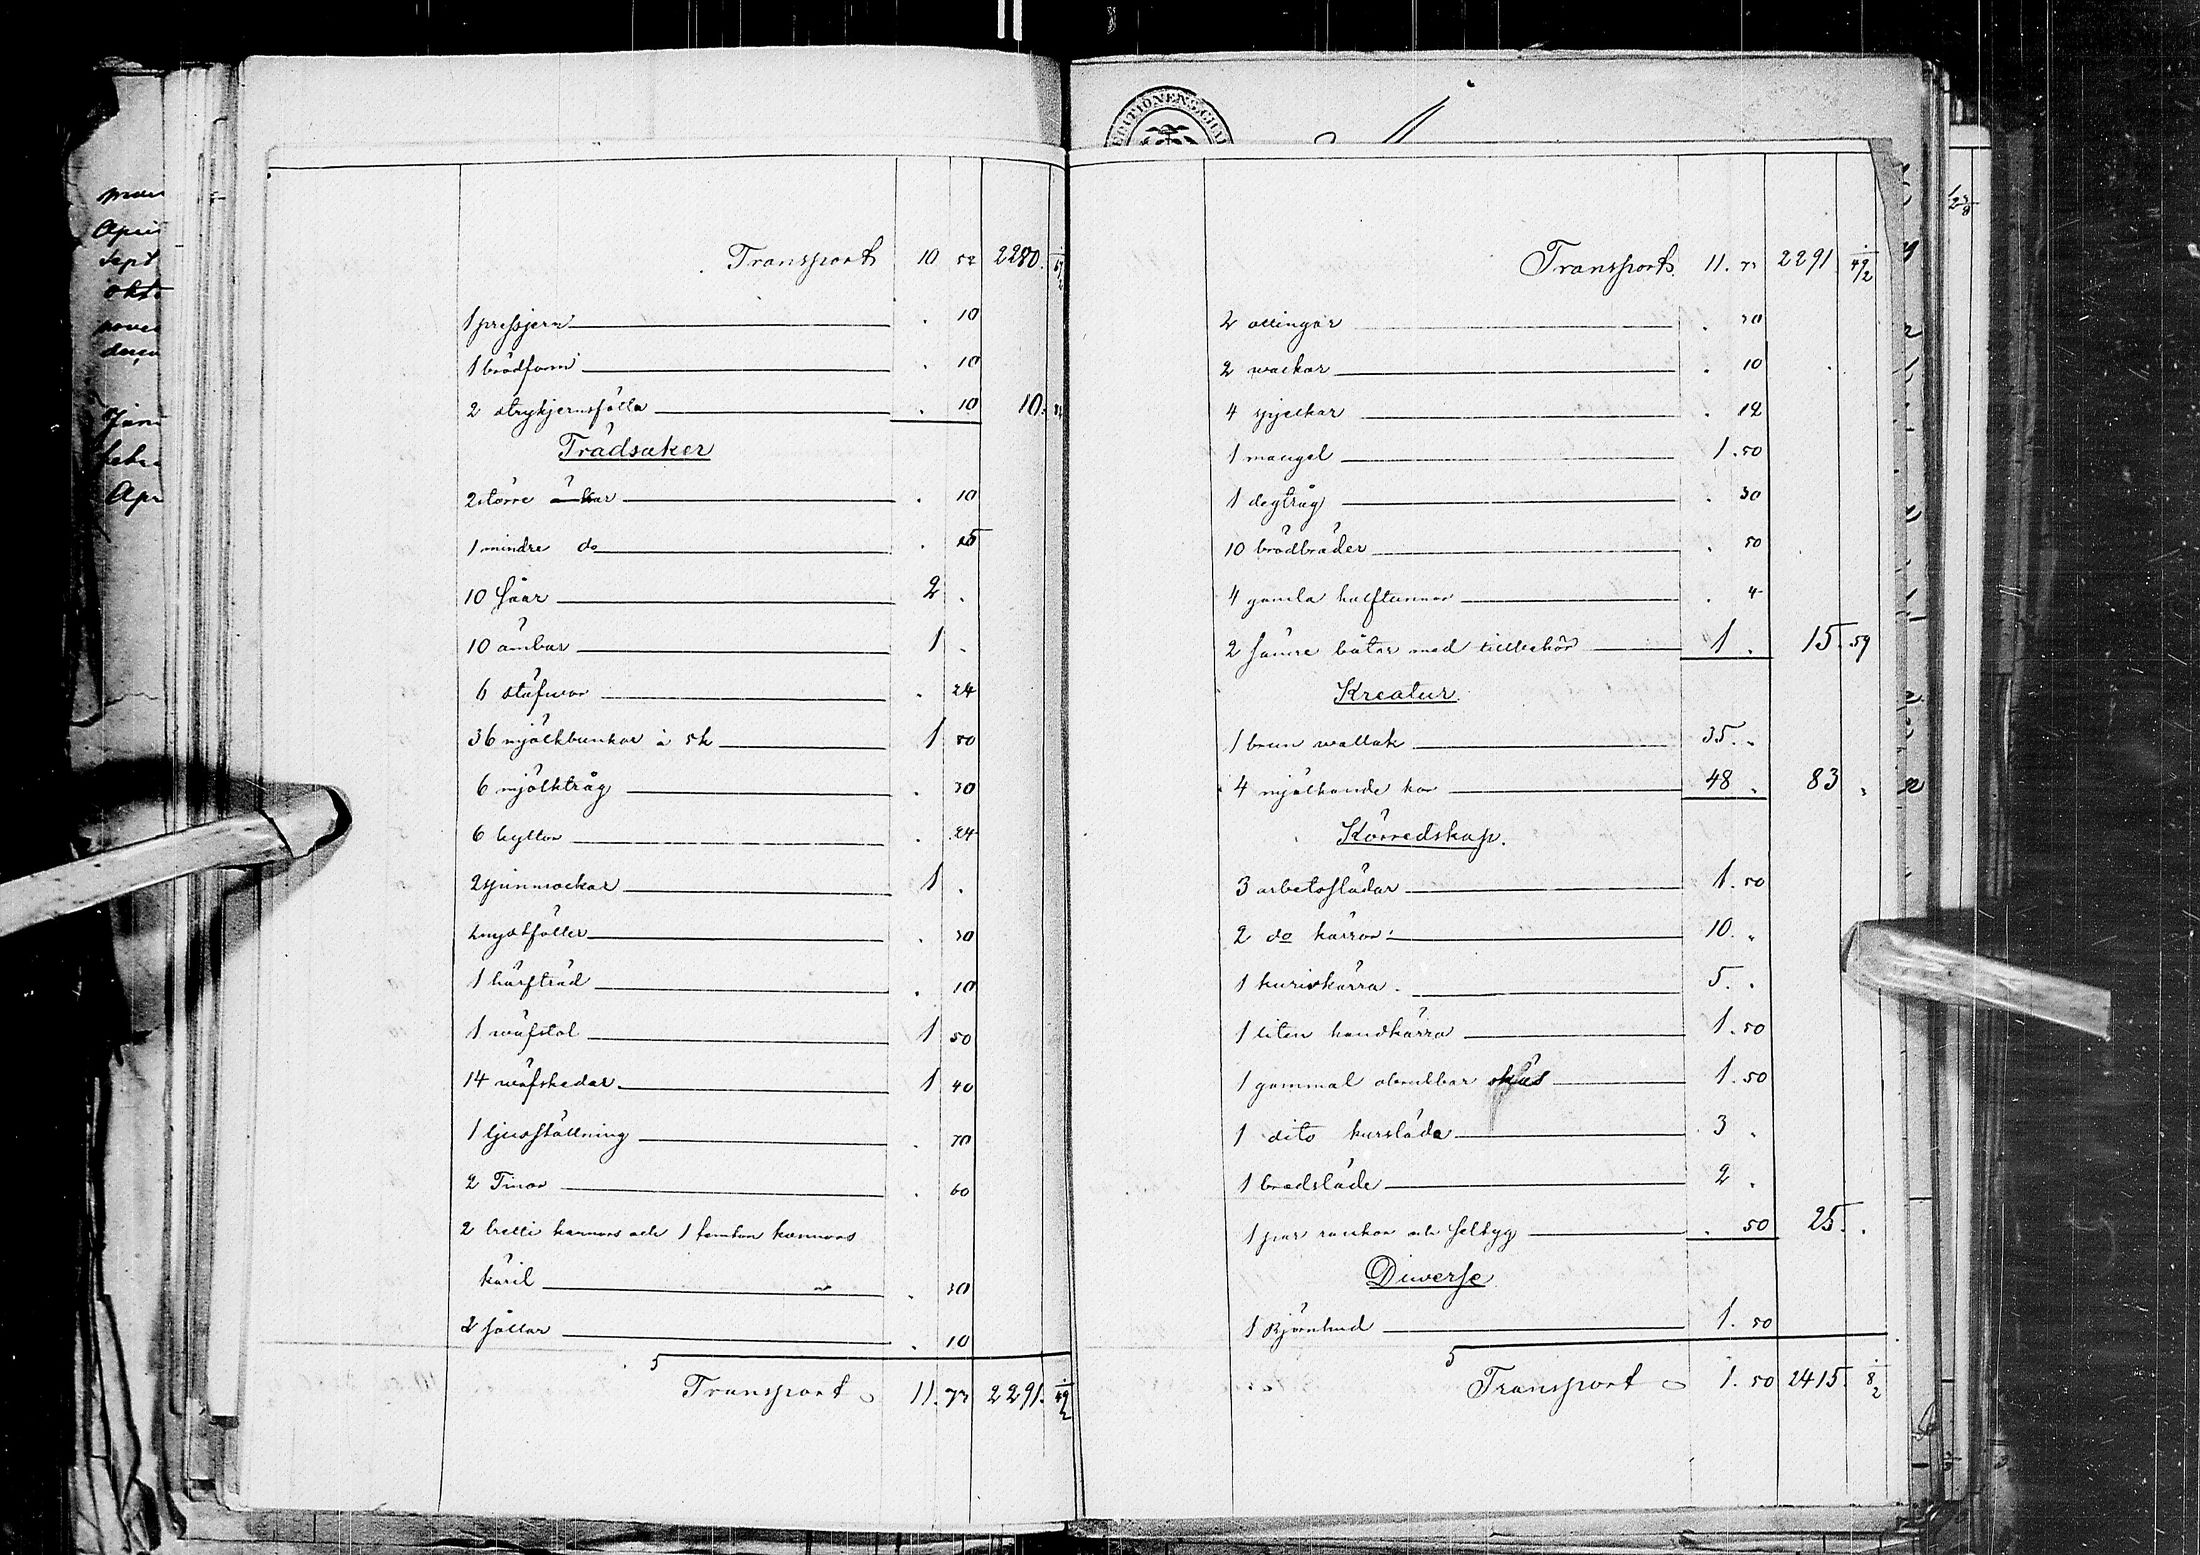 Transport 10 52 2280. 67/2
1 pressjern . 10
1 brödform . 10
2 strykjernsfötter . 10 10. 82
Trädsaker
2 större åmbar . 10
1 mindre do . 25
10 såar 2 .
10 ämbar 1 .
6 stäfwor . 24
36 mjölkbunkar à 5k 1 80
6 mjölktråg . 30
6 byttor . 24
2 spinnrockar 1 .
. 30
1 härfträd . 10
1 wäfstol 1 50
14 wäfskedar 1 40
1 ljusställning . 70
2 Tinor . 60
2 tretti kannors och 1 femton kannors
käril . 30
2 sållar . 10
Transport 11. 73 2291. 49/2
EDITIONENS CHA
Transport 11. 73 2291 49/2
2 ottingar . 20
2 wackor . 10
4 spjelkar . 12
1 mangel 1. 50
1 degtråg . 30
10 brödbräder . 50
4 gamla halftunnor . 4
2 sämre båtar med tillbehör 1 . 15. 59
Kreatur
1 brun wallak 35. .
4 mjölkande kor 48 . 83 .
Körredskap.
3 arbetsslädar 1. 50
2 do kärror 10. .
1 kurirkärra 5. .
1 liten handkärra 1. 50
1 gammal obrukbar skås 1. 50
1 dito kursläde 3 .
1 bredsläde 2 .
1 par rankor och seltyg . 50 25. .
Diwerse
1 Björnhud 1. 50
Transport 1. 50 2415. 8/2